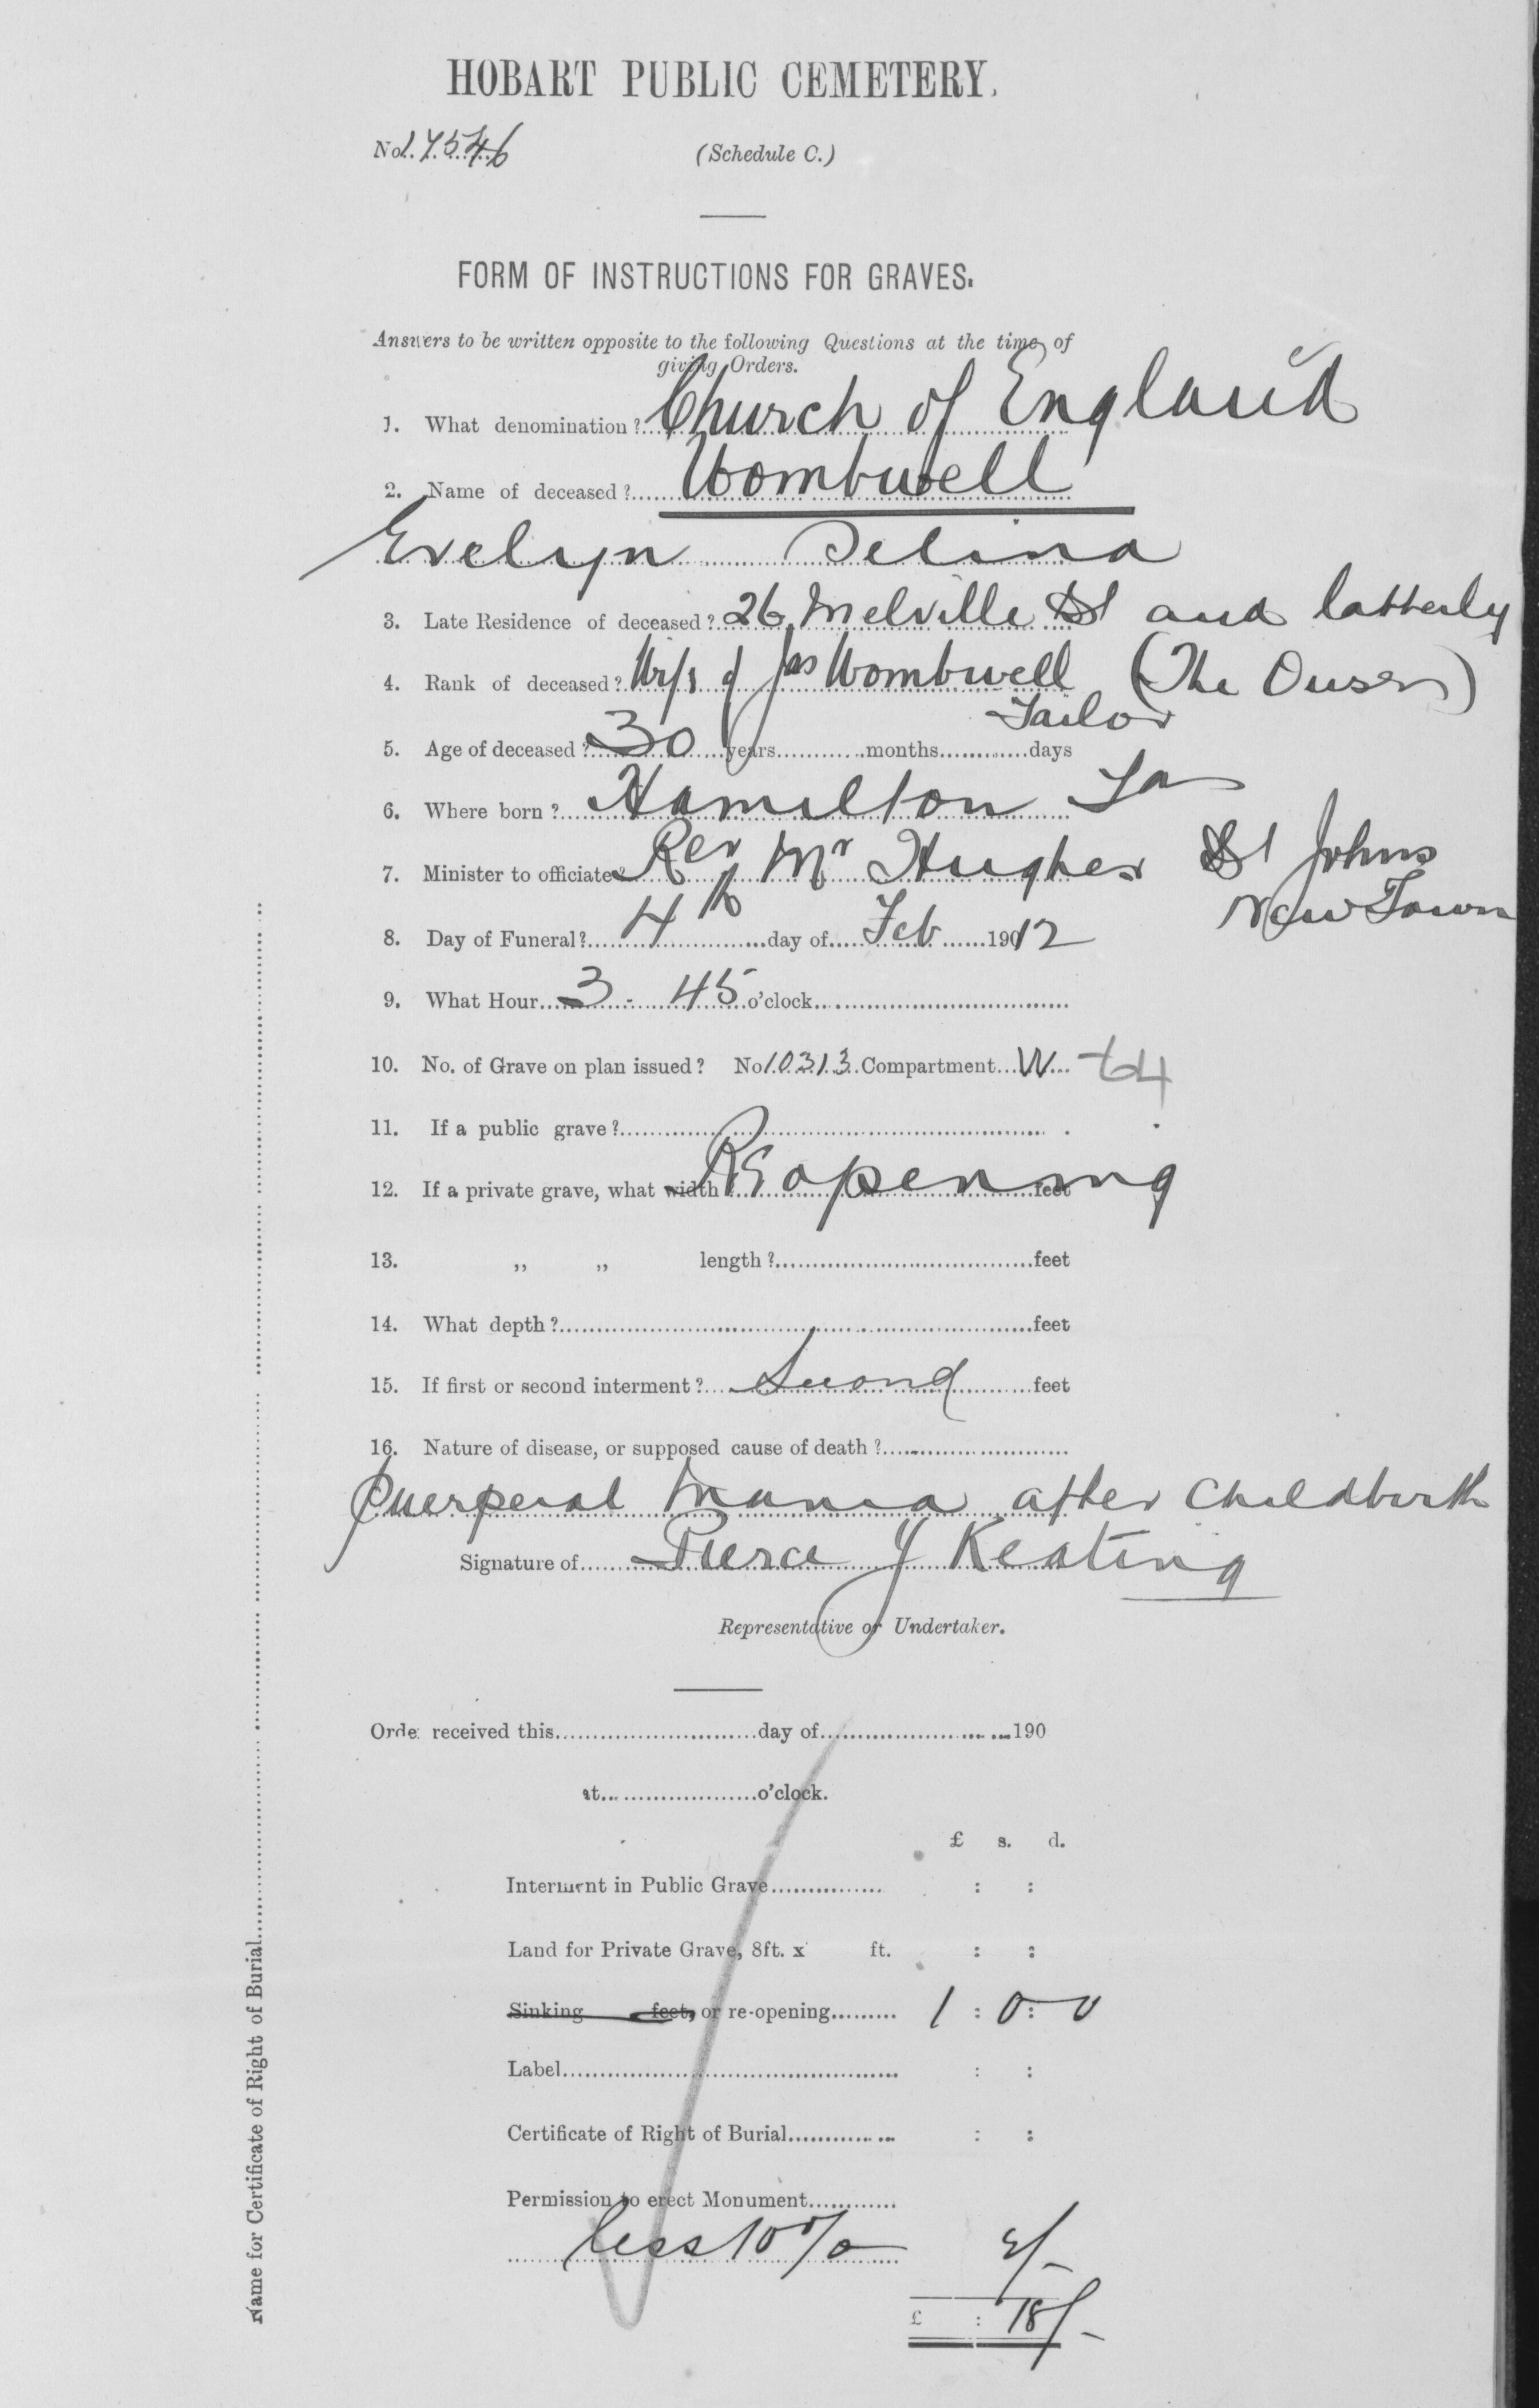 HOBART PUBLIC CEMETERY.
No. 17546 (Schedule C.)
FORM OF INSTRUCTIONS FOR GRAVES.
Answers to be written opposite to the following Questions at the time of
giving Orders.
1. What denomination? Church of England
2. Name of deceased? Wombwell
Evelyn Selina
3. Late Residence of deceased? 26 Melville St and latterly
4. Rank of deceased? Wife of Jas Wombwell (The Ouse)
Tailor
5. Age of deceased? 30 years months days
6. Where born? Hamilton Tas
7. Minister to officiate Rev Mr Hughes St Johns
New Town
8. Day of Funeral? 4th day of Feb 1912
9. What Hour 3.45 o'clock
10. No. of Grave on plan issued? No 10313 Compartment W 64
11. If a public grave?
12. If a private grave, what width Reopening feet
13. „ „ length? feet
14. What depth? feet
15. If first or second interment? Second feet
16. Nature of disease, or supposed cause of death?
Puerperal Mania after Childbirth
Signature of Pierce J Keating
Representative or Undertaker.
Order received this day of 190
at o'clock.
£ s. d.
Interment in Public Grave : :
Land for Private Grave, 8ft. x ft. : :
Sinking feet, or re-opening 1 : 0 : 0
Label : :
Certificate of Right of Burial : :
Permission to erect Monument
less 10% 2/-
£ : 18/-
Name for Certificate of Right of Burial